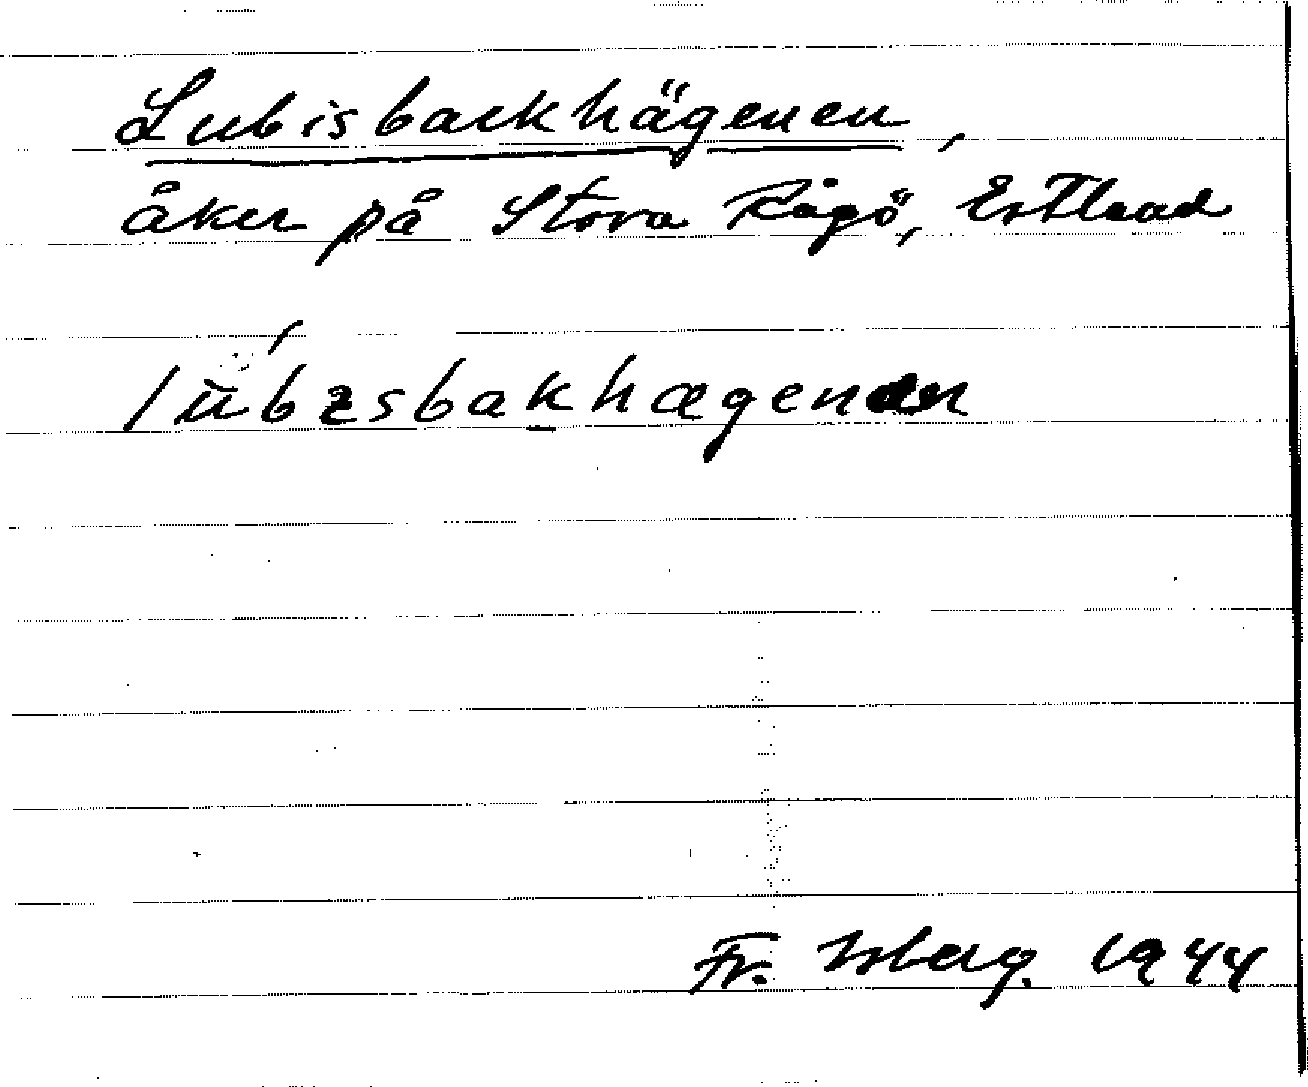 Lubisbackhägenen,
åker på Stora Rågö, Estland
lū́bɪsbakhægenen
Fr. Isberg. 1944